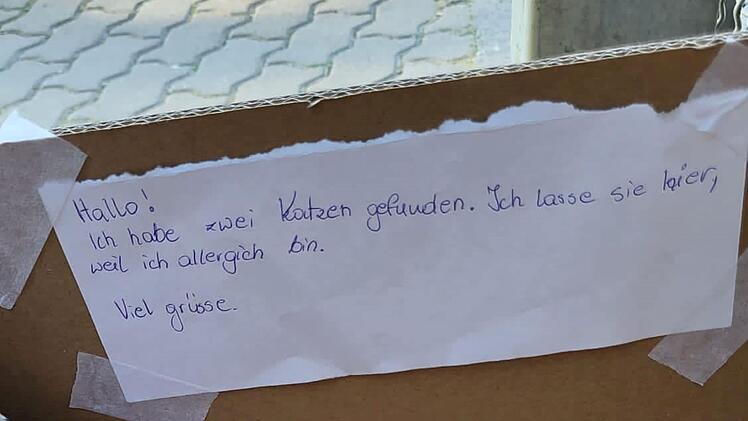 Hallo!
Ich habe zwei Katzen gefunden. Ich lasse sie hier,
weil ich allergich bin.
Viel grüsse.